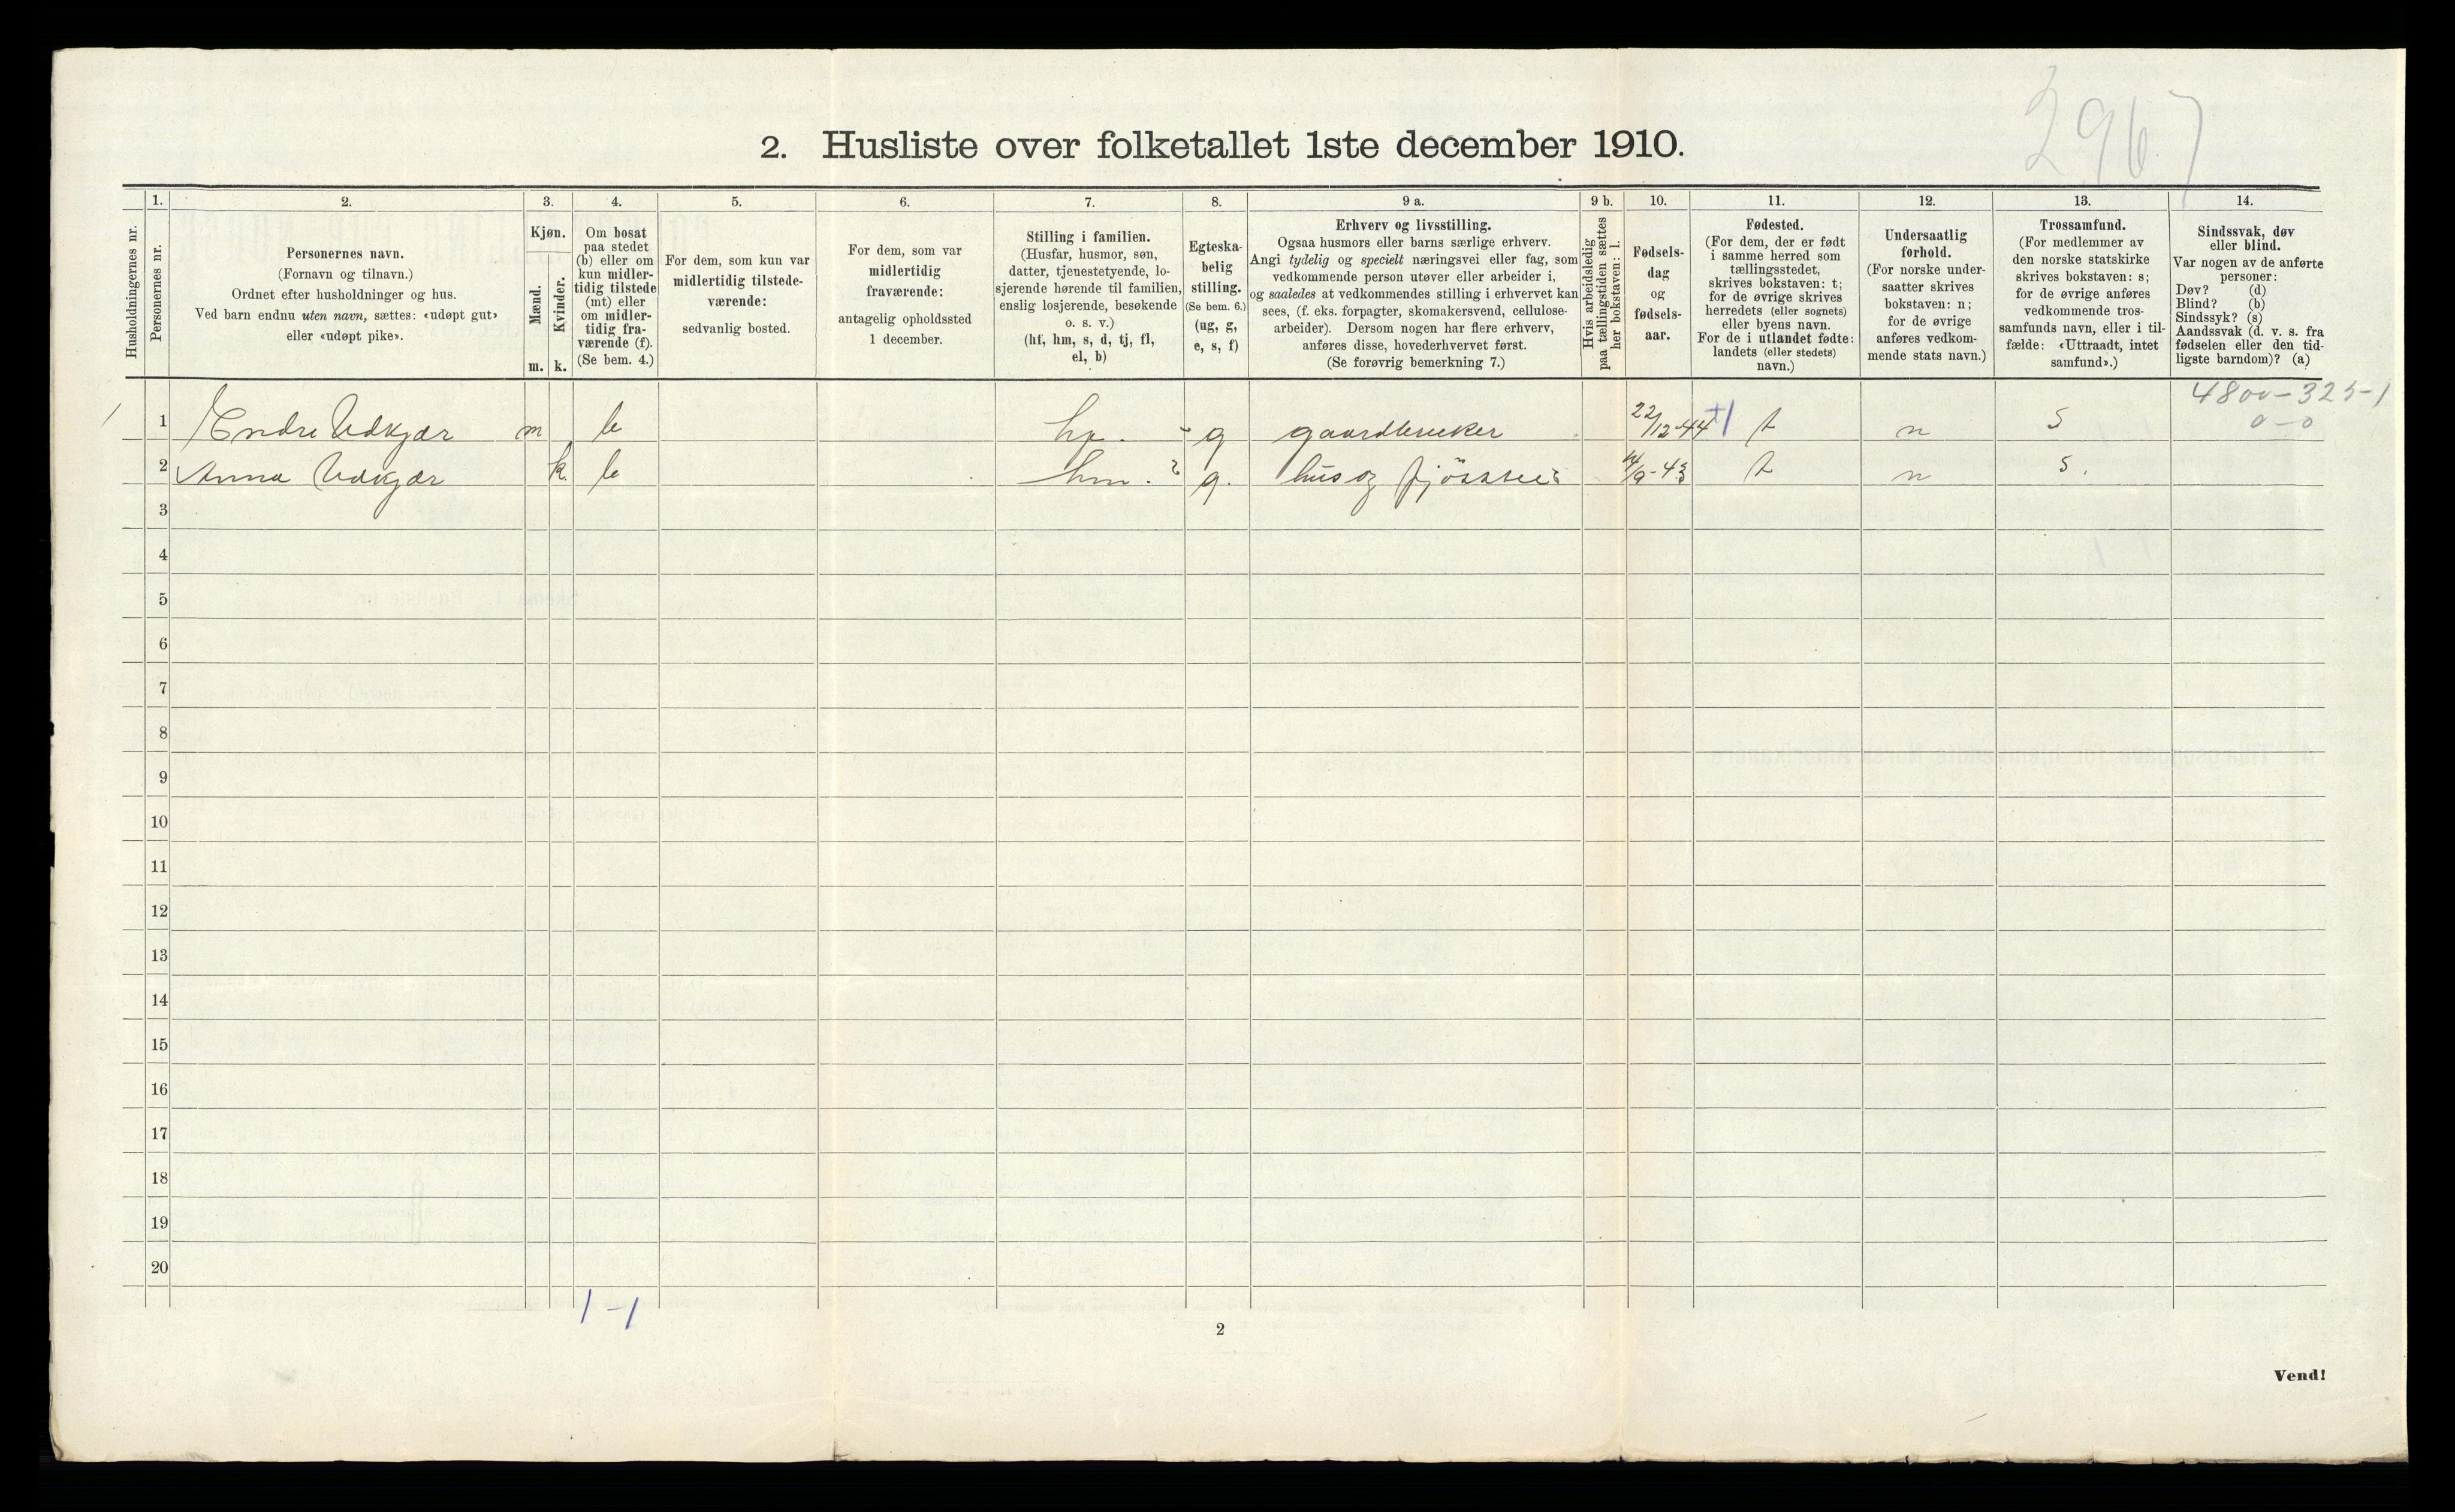 2967
2. Husliste over folketallet 1ste december 1910.
Husholdningernes nr.
1.
Personernes nr.
2.
Personernes navn.
(Fornavn og tilnavn.)
Ordnet efter husholdninger og hus.
Ved barn endnu uten navn, sættes: «udøpt gut»
eller «udøpt pike».
3.
Kjøn.
Mænd.
Kvinder.
m. k.
4.
Om bosat
paa stedet
(b) eller om
kun midler-
tidig tilstede
(mt) eller
om midler-
tidig fra-
værende (f).
(Se bem. 4.)
5.
For dem, som kun var
midlertidig tilstede-
værende:
sedvanlig bosted.
6.
For dem, som var
midlertidig
fraværende:
antagelig opholdssted
1 december.
7.
Stilling i familien.
(Husfar, husmor, søn,
datter, tjenestetyende, lo-
sjerende hørende til familien,
enslig losjerende, besøkende
o. s. v.)
(hf, hm, s, d, tj, fl,
el, b)
8.
Egteska-
belig
stilling.
(Se bem. 6.)
(ug, g,
e, s, f)
9 a.
Erhverv og livsstilling.
Ogsaa husmors eller barns særlige erhverv.
Angi tydelig og specielt næringsvei eller fag, som
vedkommende person utøver eller arbeider i,
og saaledes at vedkommendes stilling i erhvervet kan
sees, (f. eks. forpagter, skomakersvend, cellulose-
arbeider). Dersom nogen har flere erhverv,
anføres disse, hovederhvervet først.
(Se forøvrig bemerkning 7.)
9 b.
Hvis arbeidsledig
paa tællingstiden sættes
her bokstaven: l.
10.
Fødsels-
dag
og
fødsels-
aar.
11.
Fødested.
(For dem, der er født
i samme herred som
tællingsstedet,
skrives bokstaven: t;
for de øvrige skrives
herredets (eller sognets)
eller byens navn.
For de i utlandet fødte:
landets (eller stedets)
navn.)
12.
Undersaatlig
forhold.
(For norske under-
saatter skrives
bokstaven: n;
for de øvrige
anføres vedkom-
mende stats navn.)
13.
Trossamfund.
(For medlemmer av
den norske statskirke
skrives bokstaven: s;
for de øvrige anføres
vedkommende tros-
samfunds navn, eller i til-
fælde: «Uttraadt, intet
samfund».)
14.
Sindssvak, døv
eller blind.
Var nogen av de anførte
personer:
Døv? (d)
Blind? (b)
Sindssyk? (s)
Aandssvak (d. v. s. fra
fødselen eller den tid-
ligste barndom)? (a)
4800-325-1
0-0
1 Endre Udkjær m b hf. g gaardbruker 22/12-44 +1 t n S
2 Anna Udkjær k. b hm. g. hus og fjösstel /9-43 t n s.
3
4
5
6
7
8
9
10
11
12
13
14
15
16
17
18
19
20
1-1
2
Vend!